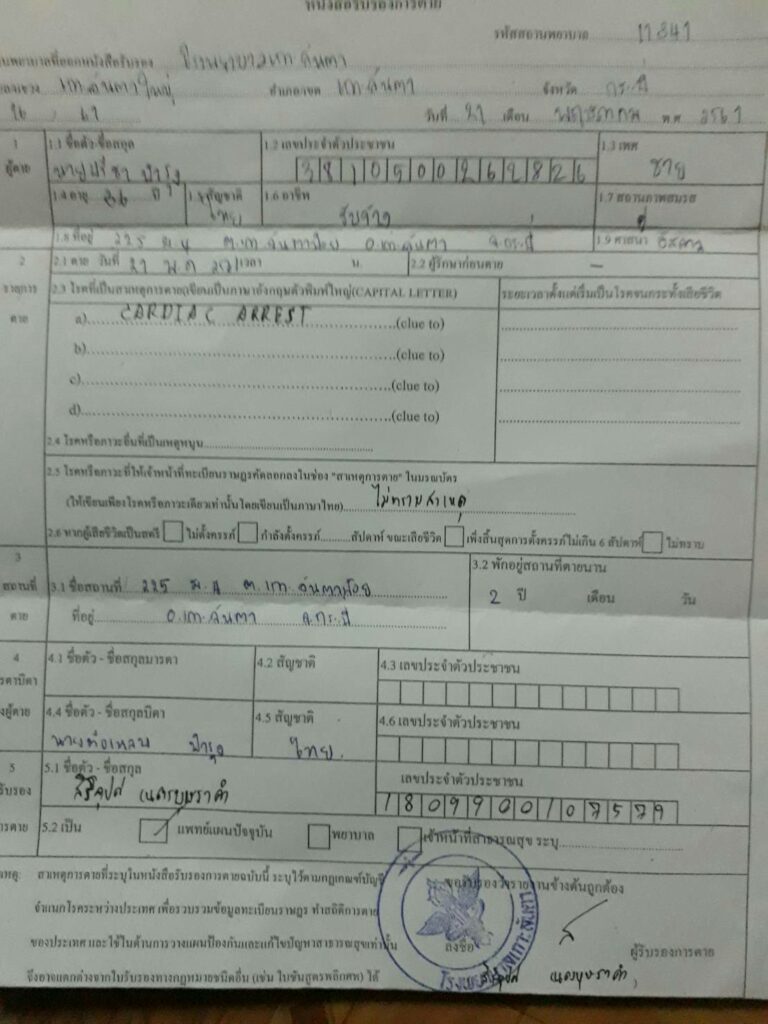 หนังสือรับรองการตาย
รหัสสถานพยาบาล 11341
นพยาบาลที่ออกหนังสือรับรอง โรงพยาบาลเกาะลันตา
เกาะลันตาใหญ่ อำเภอ/เขต เกาะลันตา จังหวัด กระบี่
16 / 61 วันที่ 21 เดือน พฤษภาคม พ.ศ 2561
1 1.1 ชื่อตัว-ชื่อสกุล 1.2 เลขประจำตัวประชาชน 1.3 เพศ
ผู้ตาย นายปรีชา บำรุง 3810500262826 ชาย
1.4 อายุ 36 ปี 1.5 สัญชาติ ไทย 1.6 อาชีพ รับจ้าง 1.7 สถานภาพสมรส คู่
1.8 ที่อยู่ 225 ม.4 ต.เกาะลันตาน้อย อ.เกาะลันตา จ.กระบี่ 1.9 ศาสนา อิสลาม
2 2.1 ตาย วันที่ 21 พ.ค เวลา น. 2.2 ผู้รักษาก่อนตาย –
2.3 โรคที่เป็นสาเหตุการตาย(เขียนเป็นภาษาอังกฤษตัวพิมพ์ใหญ่(CAPITAL LETTER) ระยะเวลาตั้งแต่เริ่มเป็นโรคจนกระทั่งเสียชีวิต
ตาย a) CARDIAC ARREST (clue to)
b) (clue to)
c) (clue to)
d) (clue to)
2.4 โรคหรือภาวะอื่นที่เป็นเหตุหนุน
2.5 โรคหรือภาวะที่ให้เจ้าหน้าที่ทะเบียนราษฎรคัดลอกลงในช่อง "สาเหตุการตาย" ในมรณบัตร
(ให้เขียนเพียงโรคหรือภาวะเดียวเท่านั้นโดยเขียนเป็นภาษาไทย) ไม่ทราบสาเหตุ
2.6 หากผู้เสียชีวิตเป็นสตรี ไม่ตั้งครรภ์ กำลังตั้งครรภ์ สัปดาห์ ขณะเสียชีวิต เพิ่งสิ้นสุดการตั้งครรภ์ไม่เกิน 6 สัปดาห์ ไม่ทราบ
3 3.2 พักอยู่สถานที่ตายนาน
สถานที่ 3.1 ชื่อสถานที่ 225 ม.4 ต.เกาะลันตาน้อย 2 ปี เดือน วัน
ตาย ที่อยู่ อ.เกาะลันตา จ.กระบี่
4 4.1 ชื่อตัว - ชื่อสกุลมารดา 4.2 สัญชาติ 4.3 เลขประจำตัวประชาชน
4.4 ชื่อตัว - ชื่อสกุลบิดา 4.5 สัญชาติ 4.6 เลขประจำตัวประชาชน
บำรุง ไทย
5 5.1 ชื่อตัว - ชื่อสกุล เลขประจำตัวประชาชน
1809900107579
5.2 เป็น แพทย์แผนปัจจุบัน พยาบาล เจ้าหน้าที่สาธารณสุข ระบุ
สาเหตุการตายที่ระบุในหนังสือรับรองการตายฉบับนี้ ระบุไว้ตามกฎเกณฑ์บัญชี ขอรับรองว่ารายงานข้างต้นถูกต้อง
จำแนกโรคระหว่างประเทศ เพื่อรวบรวมข้อมูลทะเบียนราษฎร ทำสถิติการตาย
ของประเทศ และใช้ในด้านการวางแผนป้องกันและแก้ไขปัญหาสาธารณสุขเท่านั้น ลงชื่อ ผู้รับรองการตาย
จึงอาจแตกต่างจากใบรับรองทางกฎหมายชนิดอื่น (เช่น ใบชันสูตรพลิกศพ) ได้